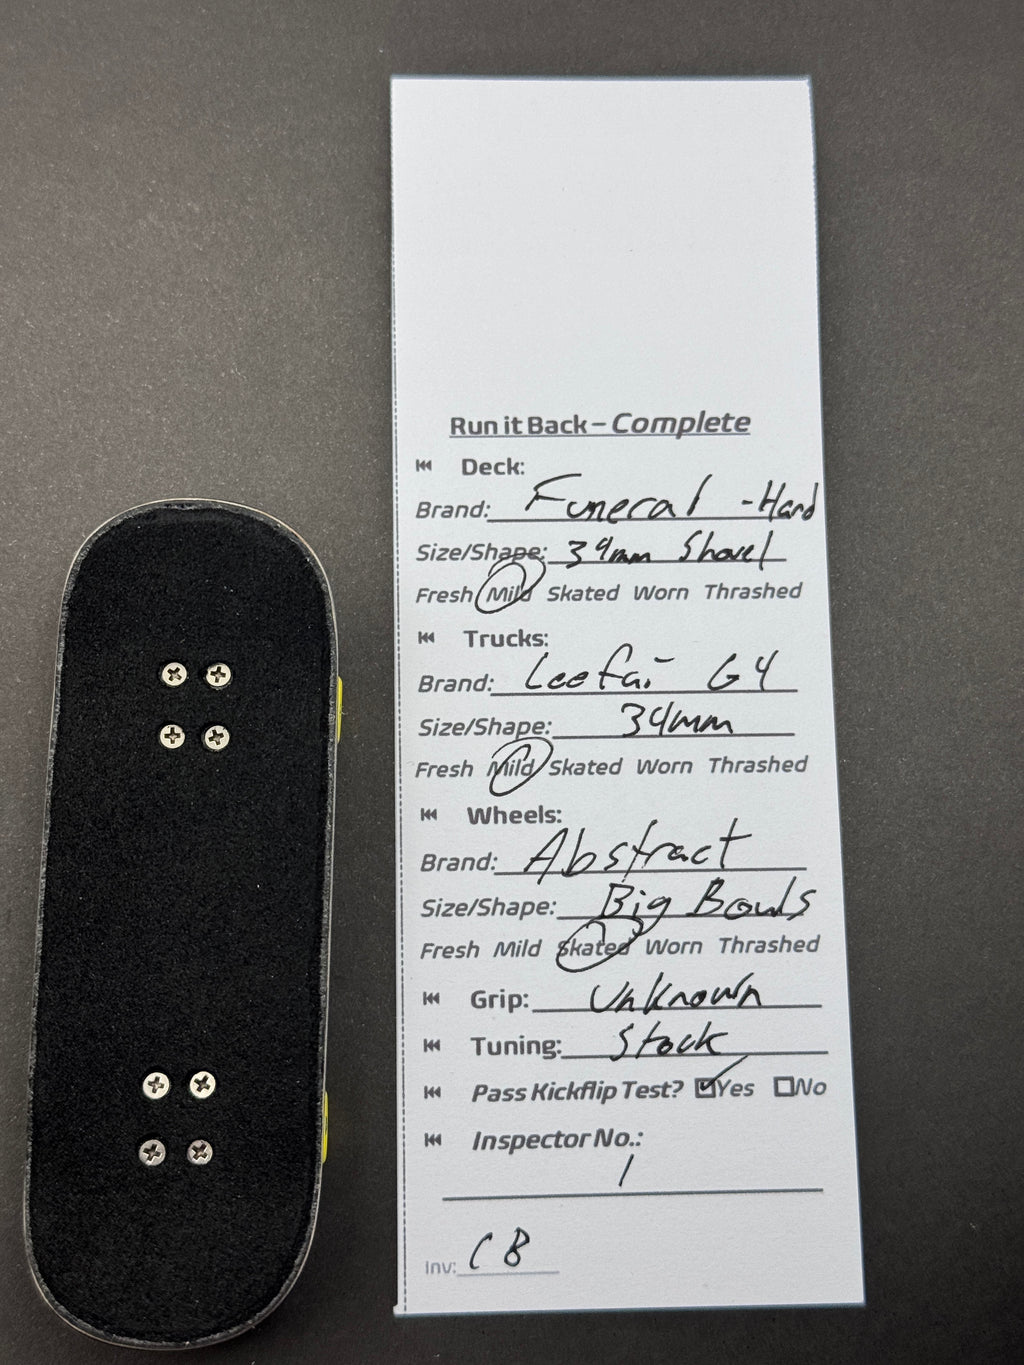 Run it Back – Complete
Deck:
Brand: Funeral - Hard
Size/Shape: 34mm Shovel
Fresh Mild Skated Worn Thrashed
Trucks:
Brand: Leefai G4
Size/Shape: 34mm
Fresh Mild Skated Worn Thrashed
Wheels:
Brand: Abstract
Size/Shape: Big Bowls
Fresh Mild Skated Worn Thrashed
Grip: Unknown
Tuning: Stock
Pass Kickflip Test? Yes No
Inspector No.:
1
Inv: C8